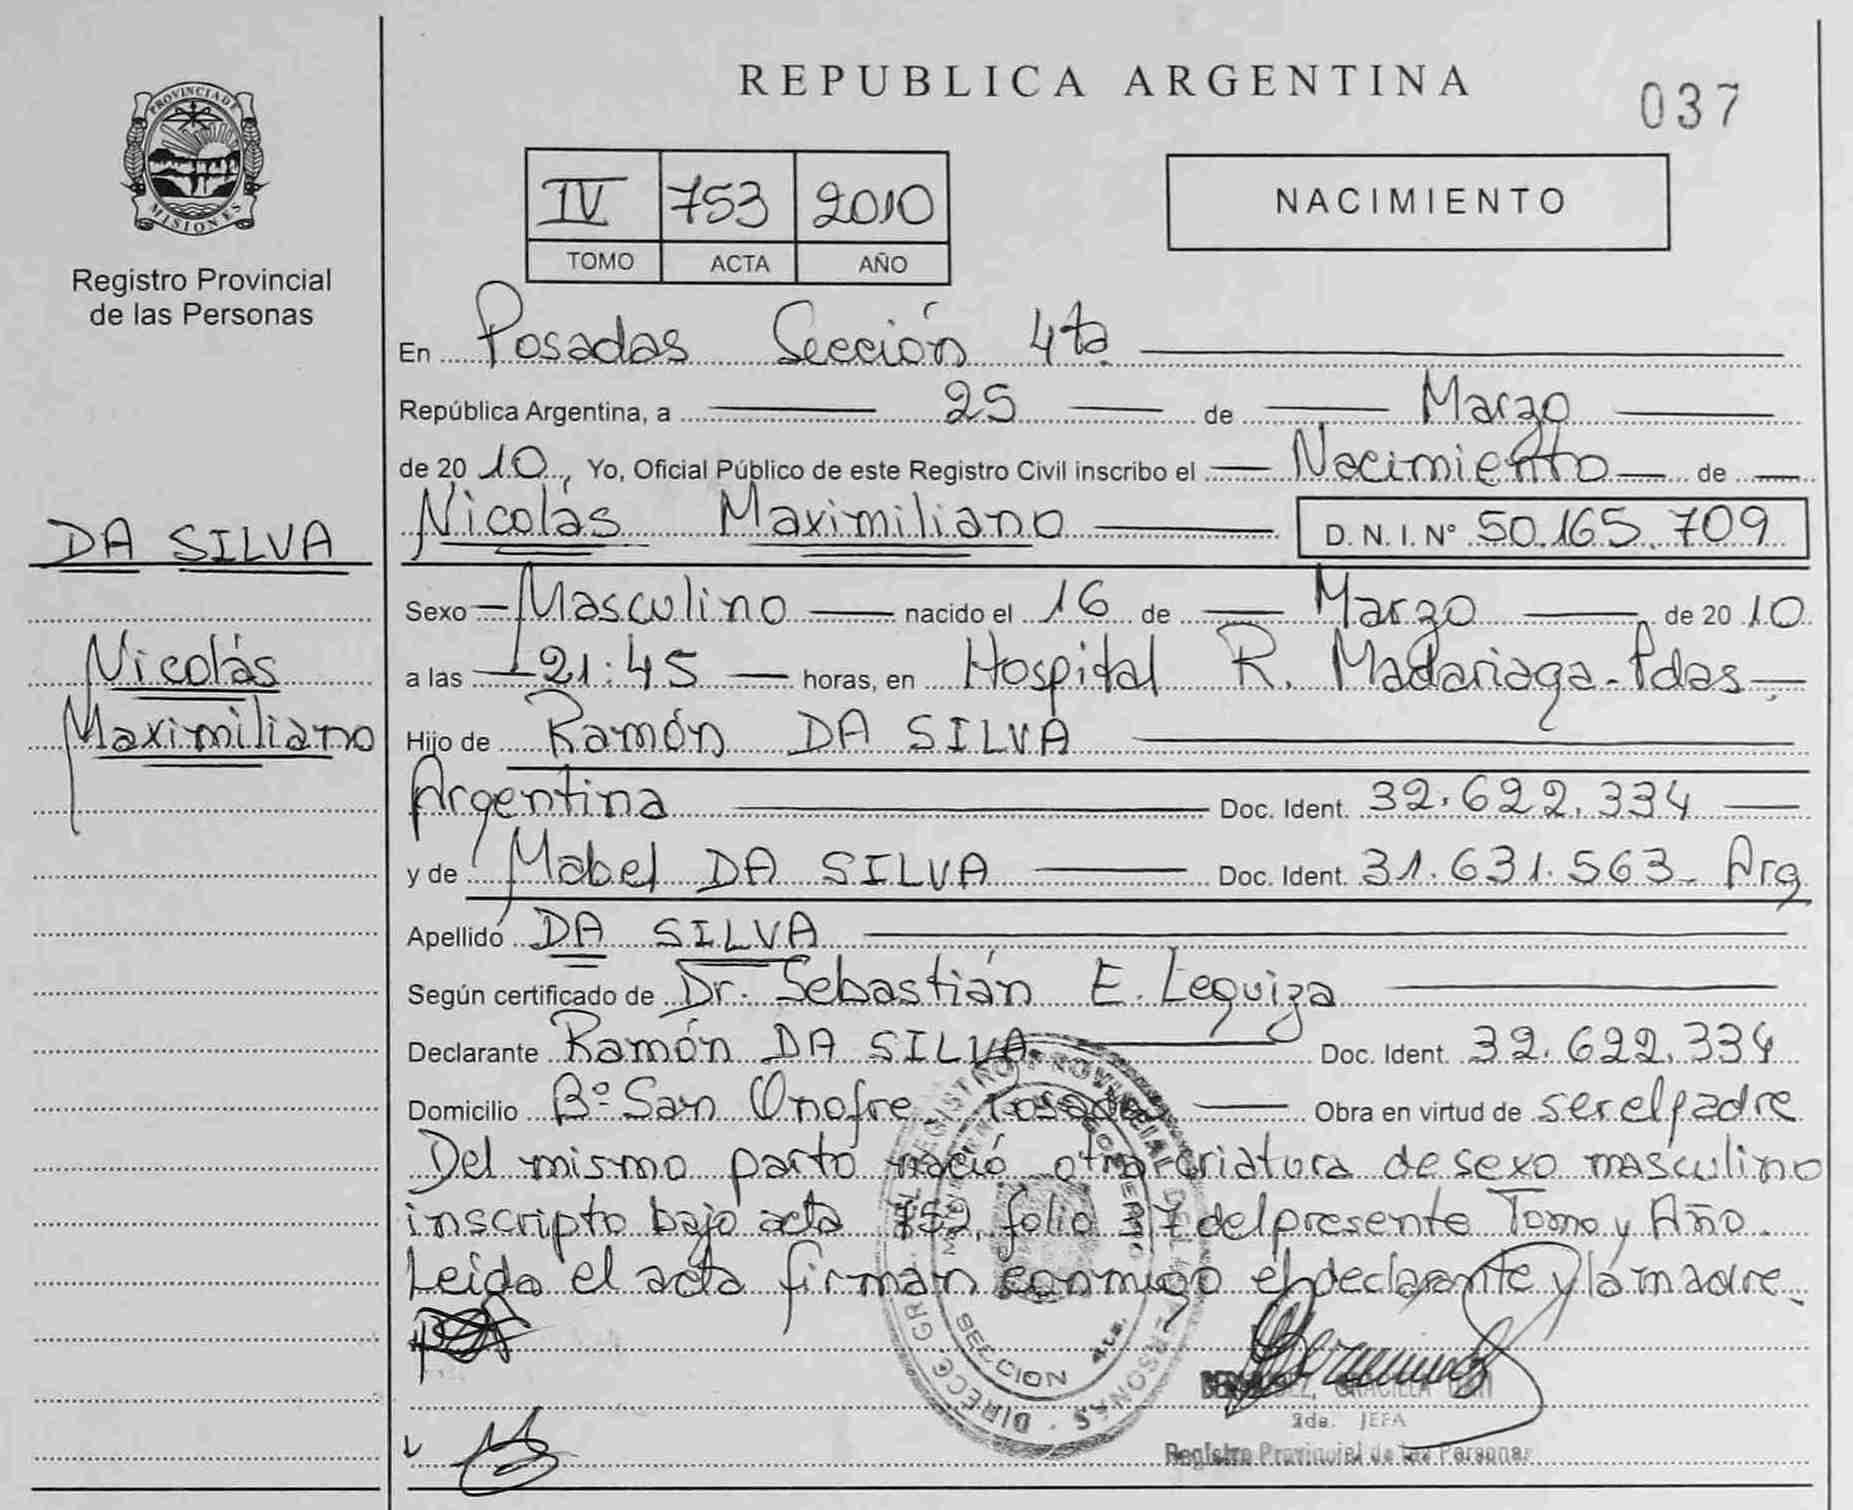 REPUBLICA ARGENTINA
037
PROVINCIA DE
MISIONES
Registro Provincial
de las Personas
IV 753 2010
TOMO ACTA AÑO
NACIMIENTO
En Posadas Sección 4ta
República Argentina, a 25 de Marzo
de 2010, Yo, Oficial Público de este Registro Civil inscribo el Nacimiento de
DA SILVA
Nicolás Maximiliano D. N. I. Nº 50.165.709
Sexo Masculino nacido el 16 de Marzo de 2010
Nicolás
a las 21:45 horas, en Hospital R. Madariaga-Pdas-
Maximiliano
Hijo de Ramón DA SILVA
Argentina Doc. Ident. 32.622.334
y de Mabel DA SILVA Doc. Ident. 31.631.563- Arg
Apellido DA SILVA
Según certificado de Dr. Sebastián E. Leguiza
Declarante Ramón DA SILVA Doc. Ident. 32.622.334
Domicilio Bº San Onofre Posadas Obra en virtud de ser el padre
Del mismo parto nació otra criatura de sexo masculino
inscripto bajo acta 752, folio 37 del presente Tomo y Año.
Leída el acta firman conmigo el declarante y la madre.
SECCION 4ta.
GRACIELA
2da. JEFA
Registro Provincial de las Personas